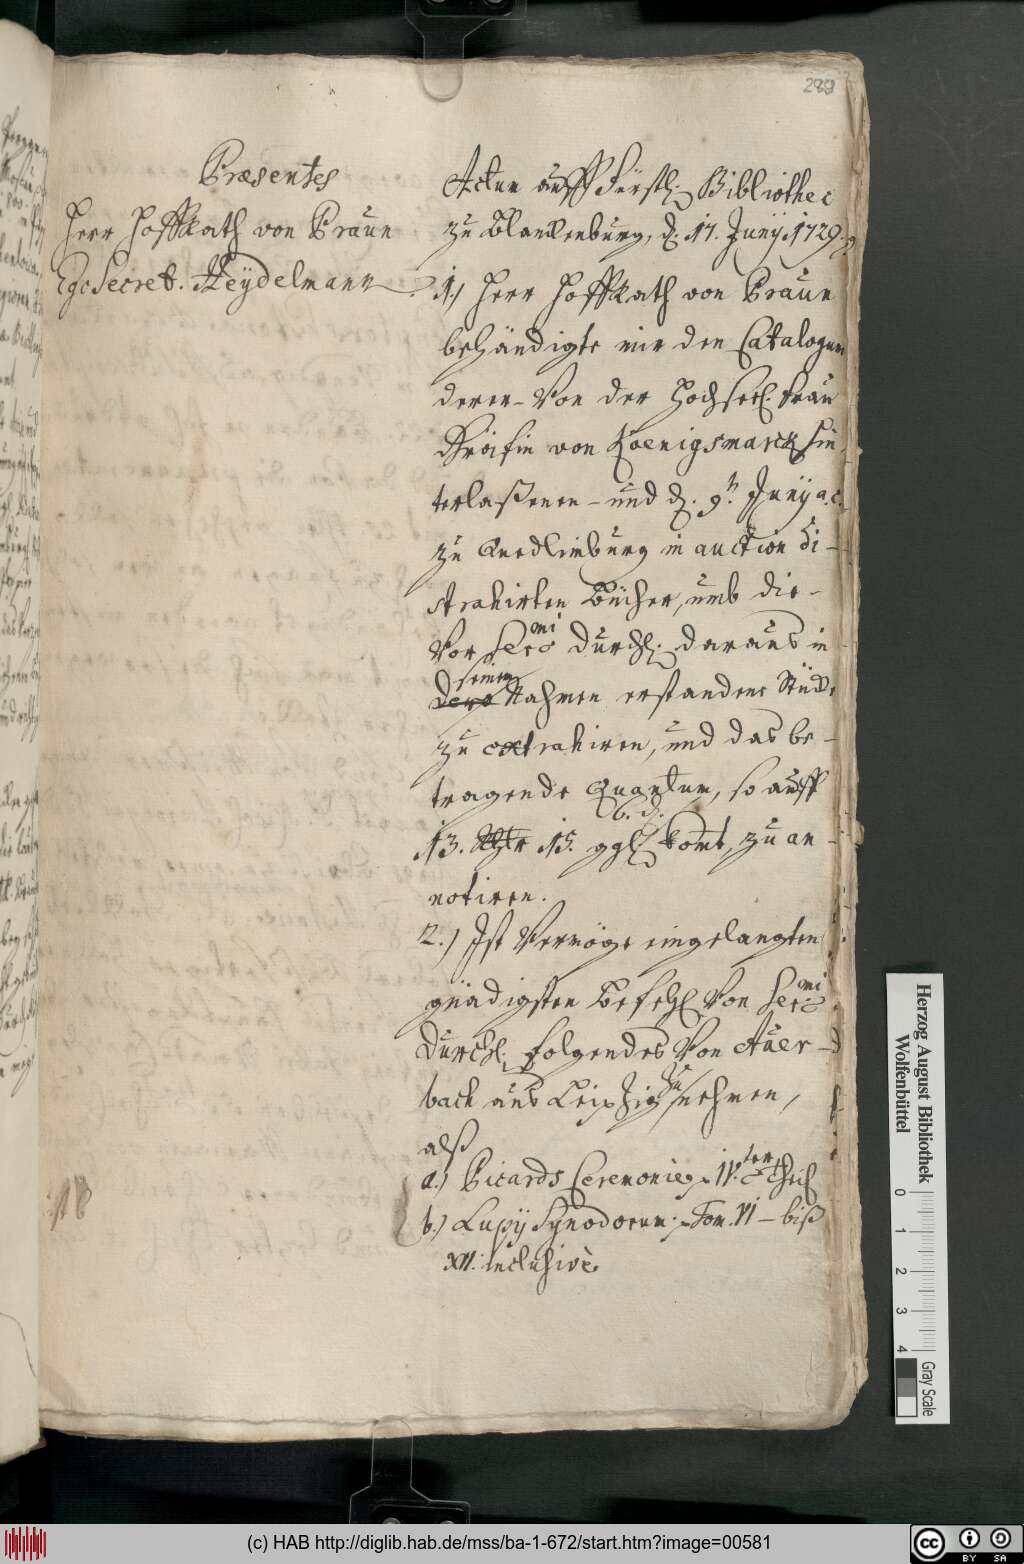 289
Præsentes
Herr HoffRath von Praun
Ego Secret. Heÿdelmann
Actum auff Fürstl. Bibliothec
zu Blanckenburg, d. 17. Junÿ. 1729.
1.) Herr HoffRath von Praun
behändigte mir den Catalogum
derer-Von der Hochseel. Frau
Gräfin von Koenigsmarck hin
terlaßenen-und d. 9.n Junÿ a. c.
zu Quedlimburg in auction di-
strahirten Bücher, umb die-
Vor Sermi Durchl. daraus in
dero seinem Nahmen erstandene Stücke
zu extrahiren, und das be-
tragende Quantum, so auff
13. Rthlr 15. ggl 6. d. komt, zu an-
notiren.
2.) Ist Vermöge eingelangten
gnädigsten Befehl Von Sermi
Durchl. folgendes Von Auer-
bach aus Leipzig zu nehmen,
alß
a.) Picards Ceremonies 11.ter theil
b.) Lupÿ Synodorum. Tom. VI - biß
XII. inclusive.
Herzog August Bibliothek
Wolfenbüttel
0 1 2 3 4
Gray Scale
(c) HAB http://diglib.hab.de/mss/ba-1-672/start.htm?image=00581
cc BY SA